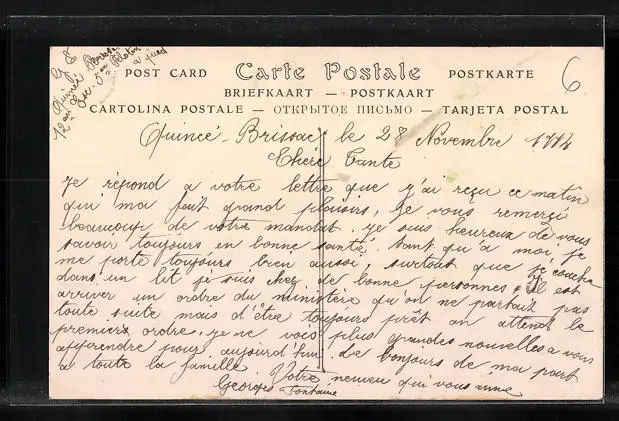 POST CARD Carte Postale POSTKARTE
BRIEFKAART — POSTKAART
CARTOLINA POSTALE — ОТКРЫТОЕ ПИСЬМО — TARJETA POSTAL
6
Quincé-Brissac le 28 Novembre 1914
Chère Tante
Je répond a votre lettre que j'ai reçu ce matin
qui ma fait grand plaisirs, Je vous remerçi
beaucoup de votre mandat. Je suis heureux de vous
savoir toujours en bonne santé. tant qu'a moi, je
me porte toujours bien aussi, surtout que je couche
dans un lit je suis chez de bonne personnes. Il est
arriver un ordre du ministère qu'on ne partait pas
toute suite mais d'être toujours prêt on attend le
premiers ordre. je ne vois plus grandes nouvelles a vous
apprendre pour aujourd'hui. Le bonjours de ma part
a toute la famille. Votre neuveu qui vous aime
Georges Fontaine